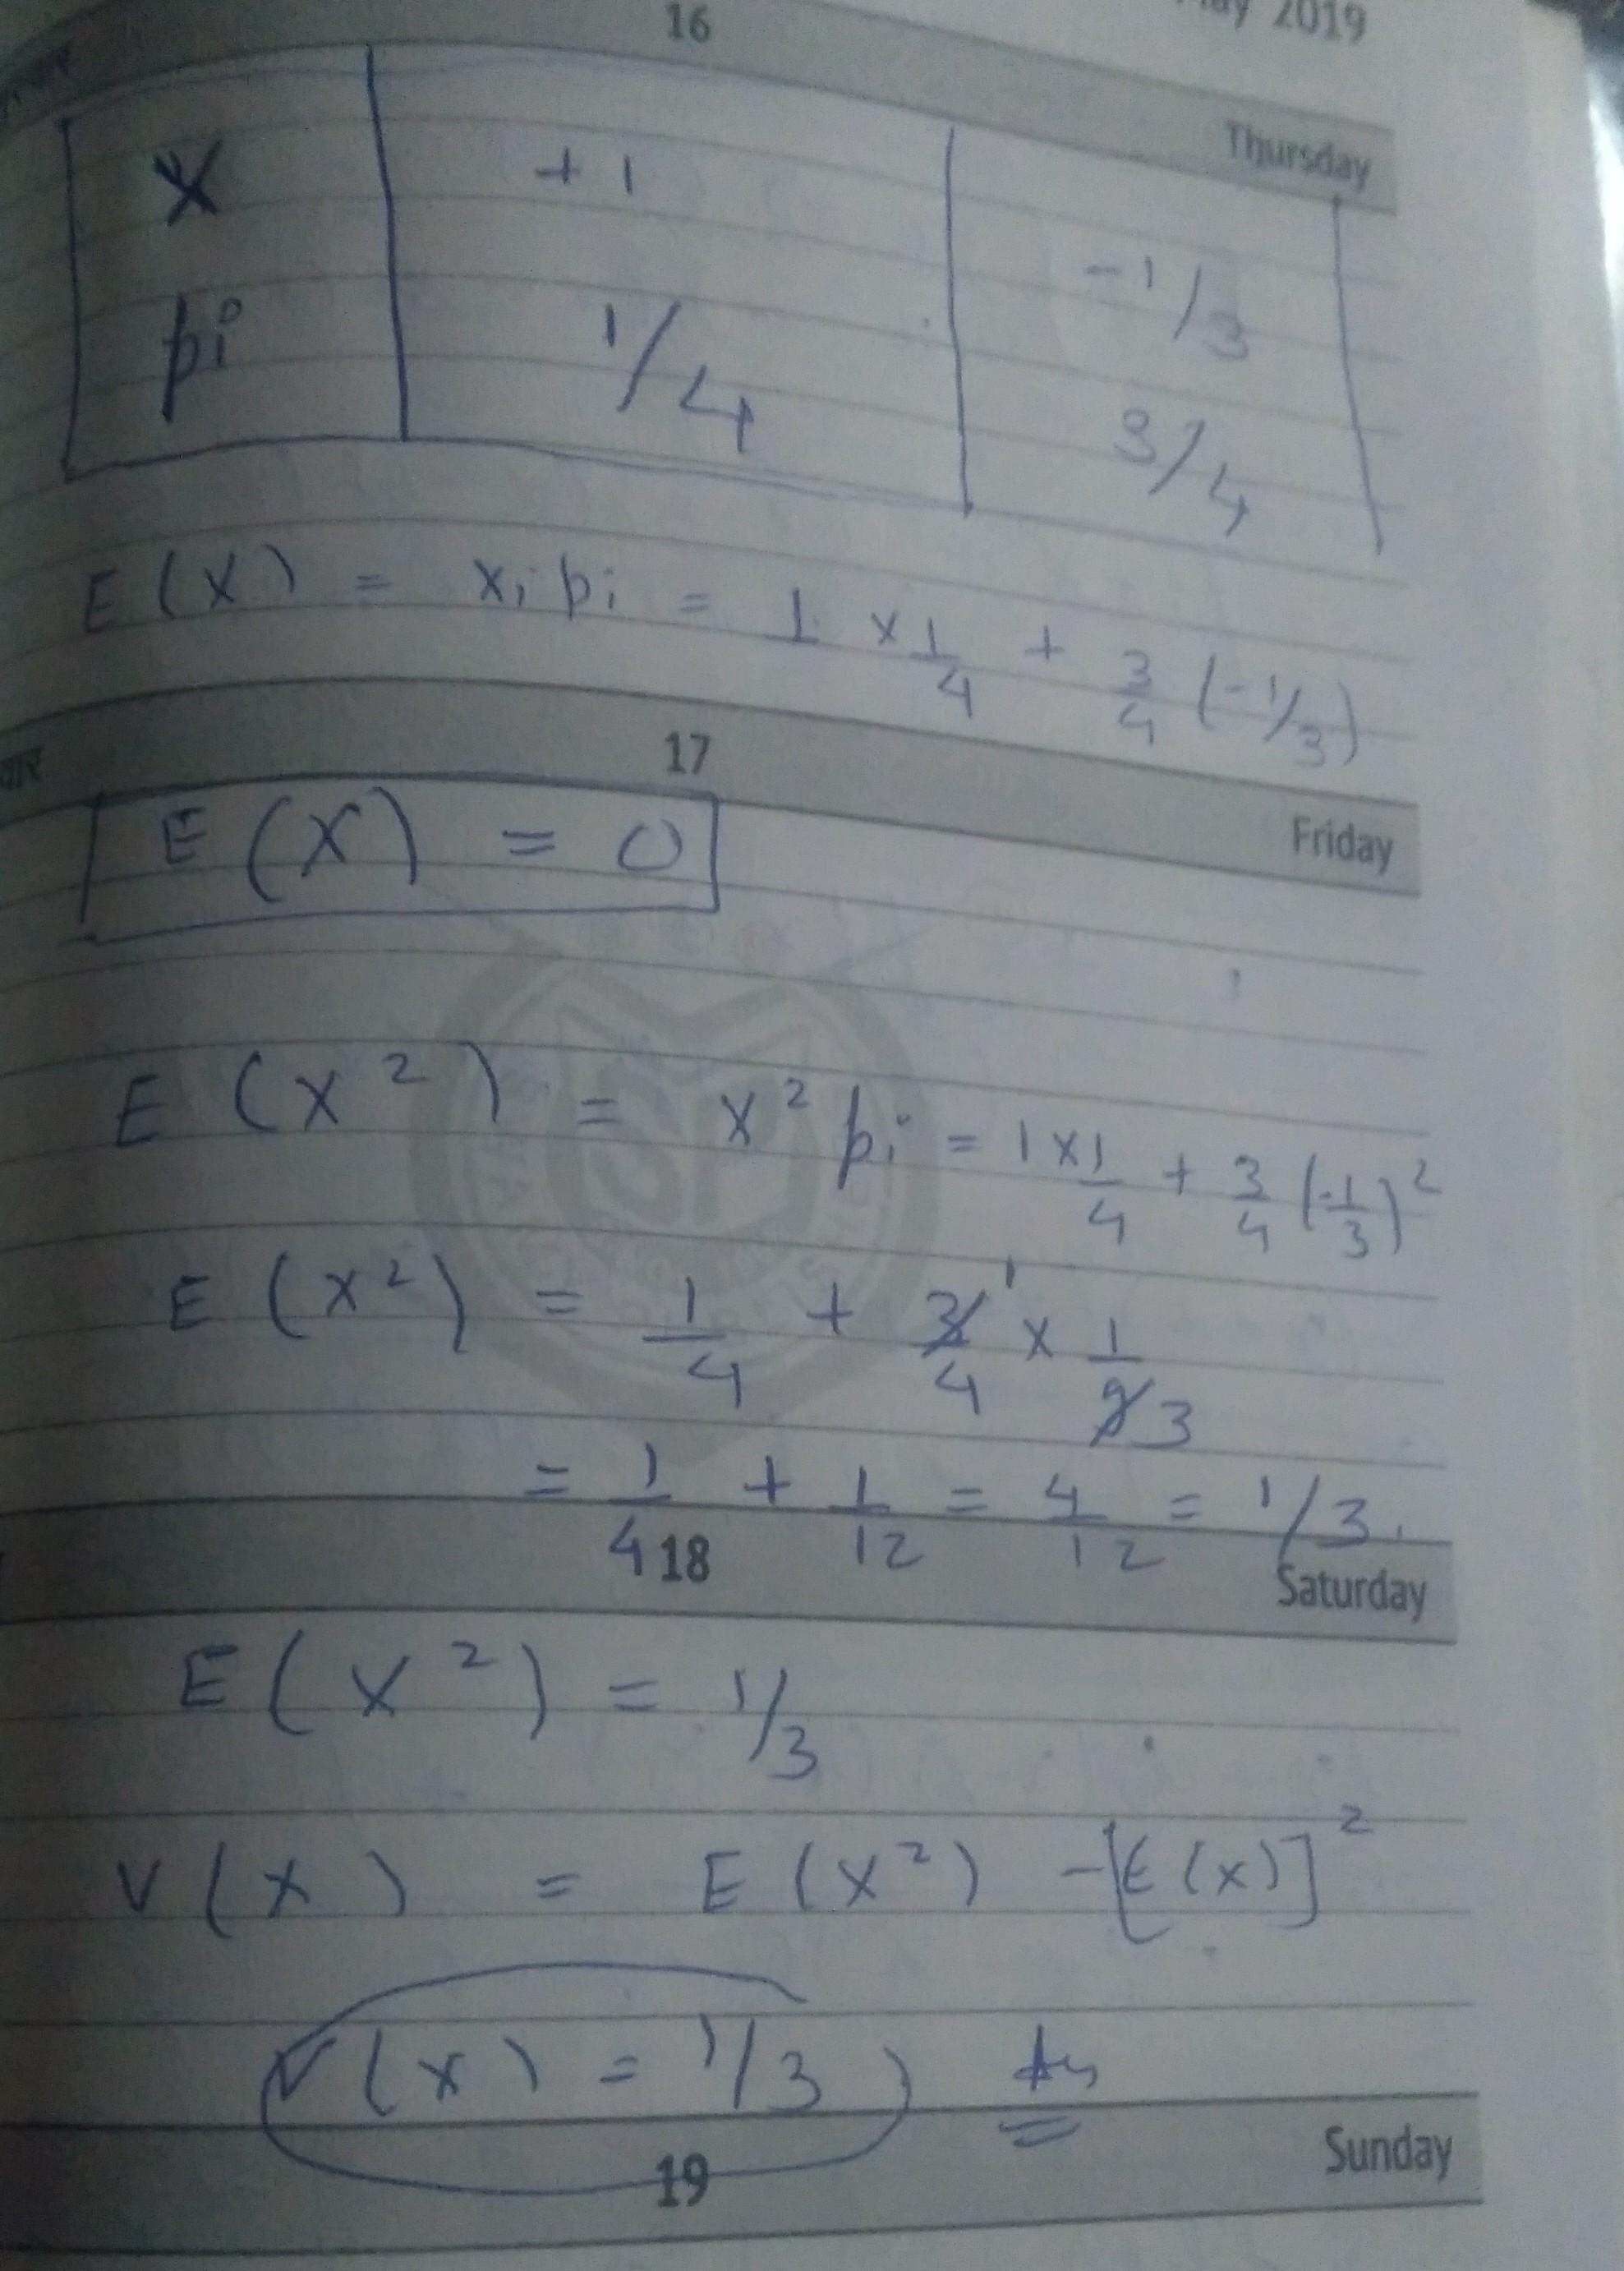 16
2019
Thursday
X | +1 | -1/3
pi | 1/4 | 3/4
E(X) = xi pi = 1 × 1/4 + 3/4 (-1/3)
17
वार
Friday
E(X) = 0
E(X²) = X² pi = 1×1/4 + 3/4 (-1/3)²
E(X²) = 1/4 + 3/4 1 × 1/9 3
= 1/4 + 1/12 = 4/12 = 1/3.
18
Saturday
E(X²) = 1/3
V(X) = E(X²) - [E(X)]²
V(X) = 1/3 Ans
19
Sunday